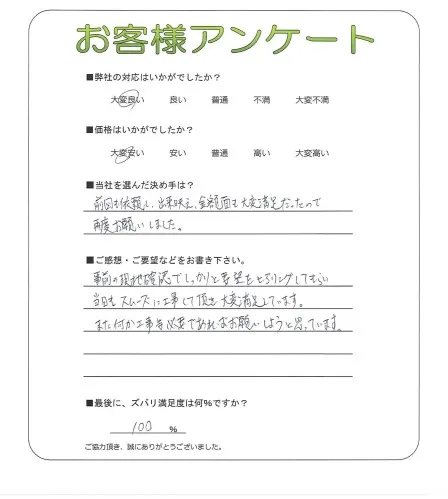 お客様アンケート
■弊社の対応はいかがでしたか？
大変良い 良い 普通 不満 大変不満
■価格はいかがでしたか？
大変安い 安い 普通 高い 大変高い
■当社を選んだ決め手は？
前回も依頼し、出来映え、金額面も大変満足だったので
再度お願いしました。
■ご感想・ご要望などをお書き下さい。
事前の現地確認でしっかりと要望をヒアリングしてもらい
当日もスムーズに工事して頂き大変満足しています。
また何か工事等必要であればお願いしようと思っています。
■最後に、ズバリ満足度は何%ですか？
100 %
ご協力頂き、誠にありがとうございました。